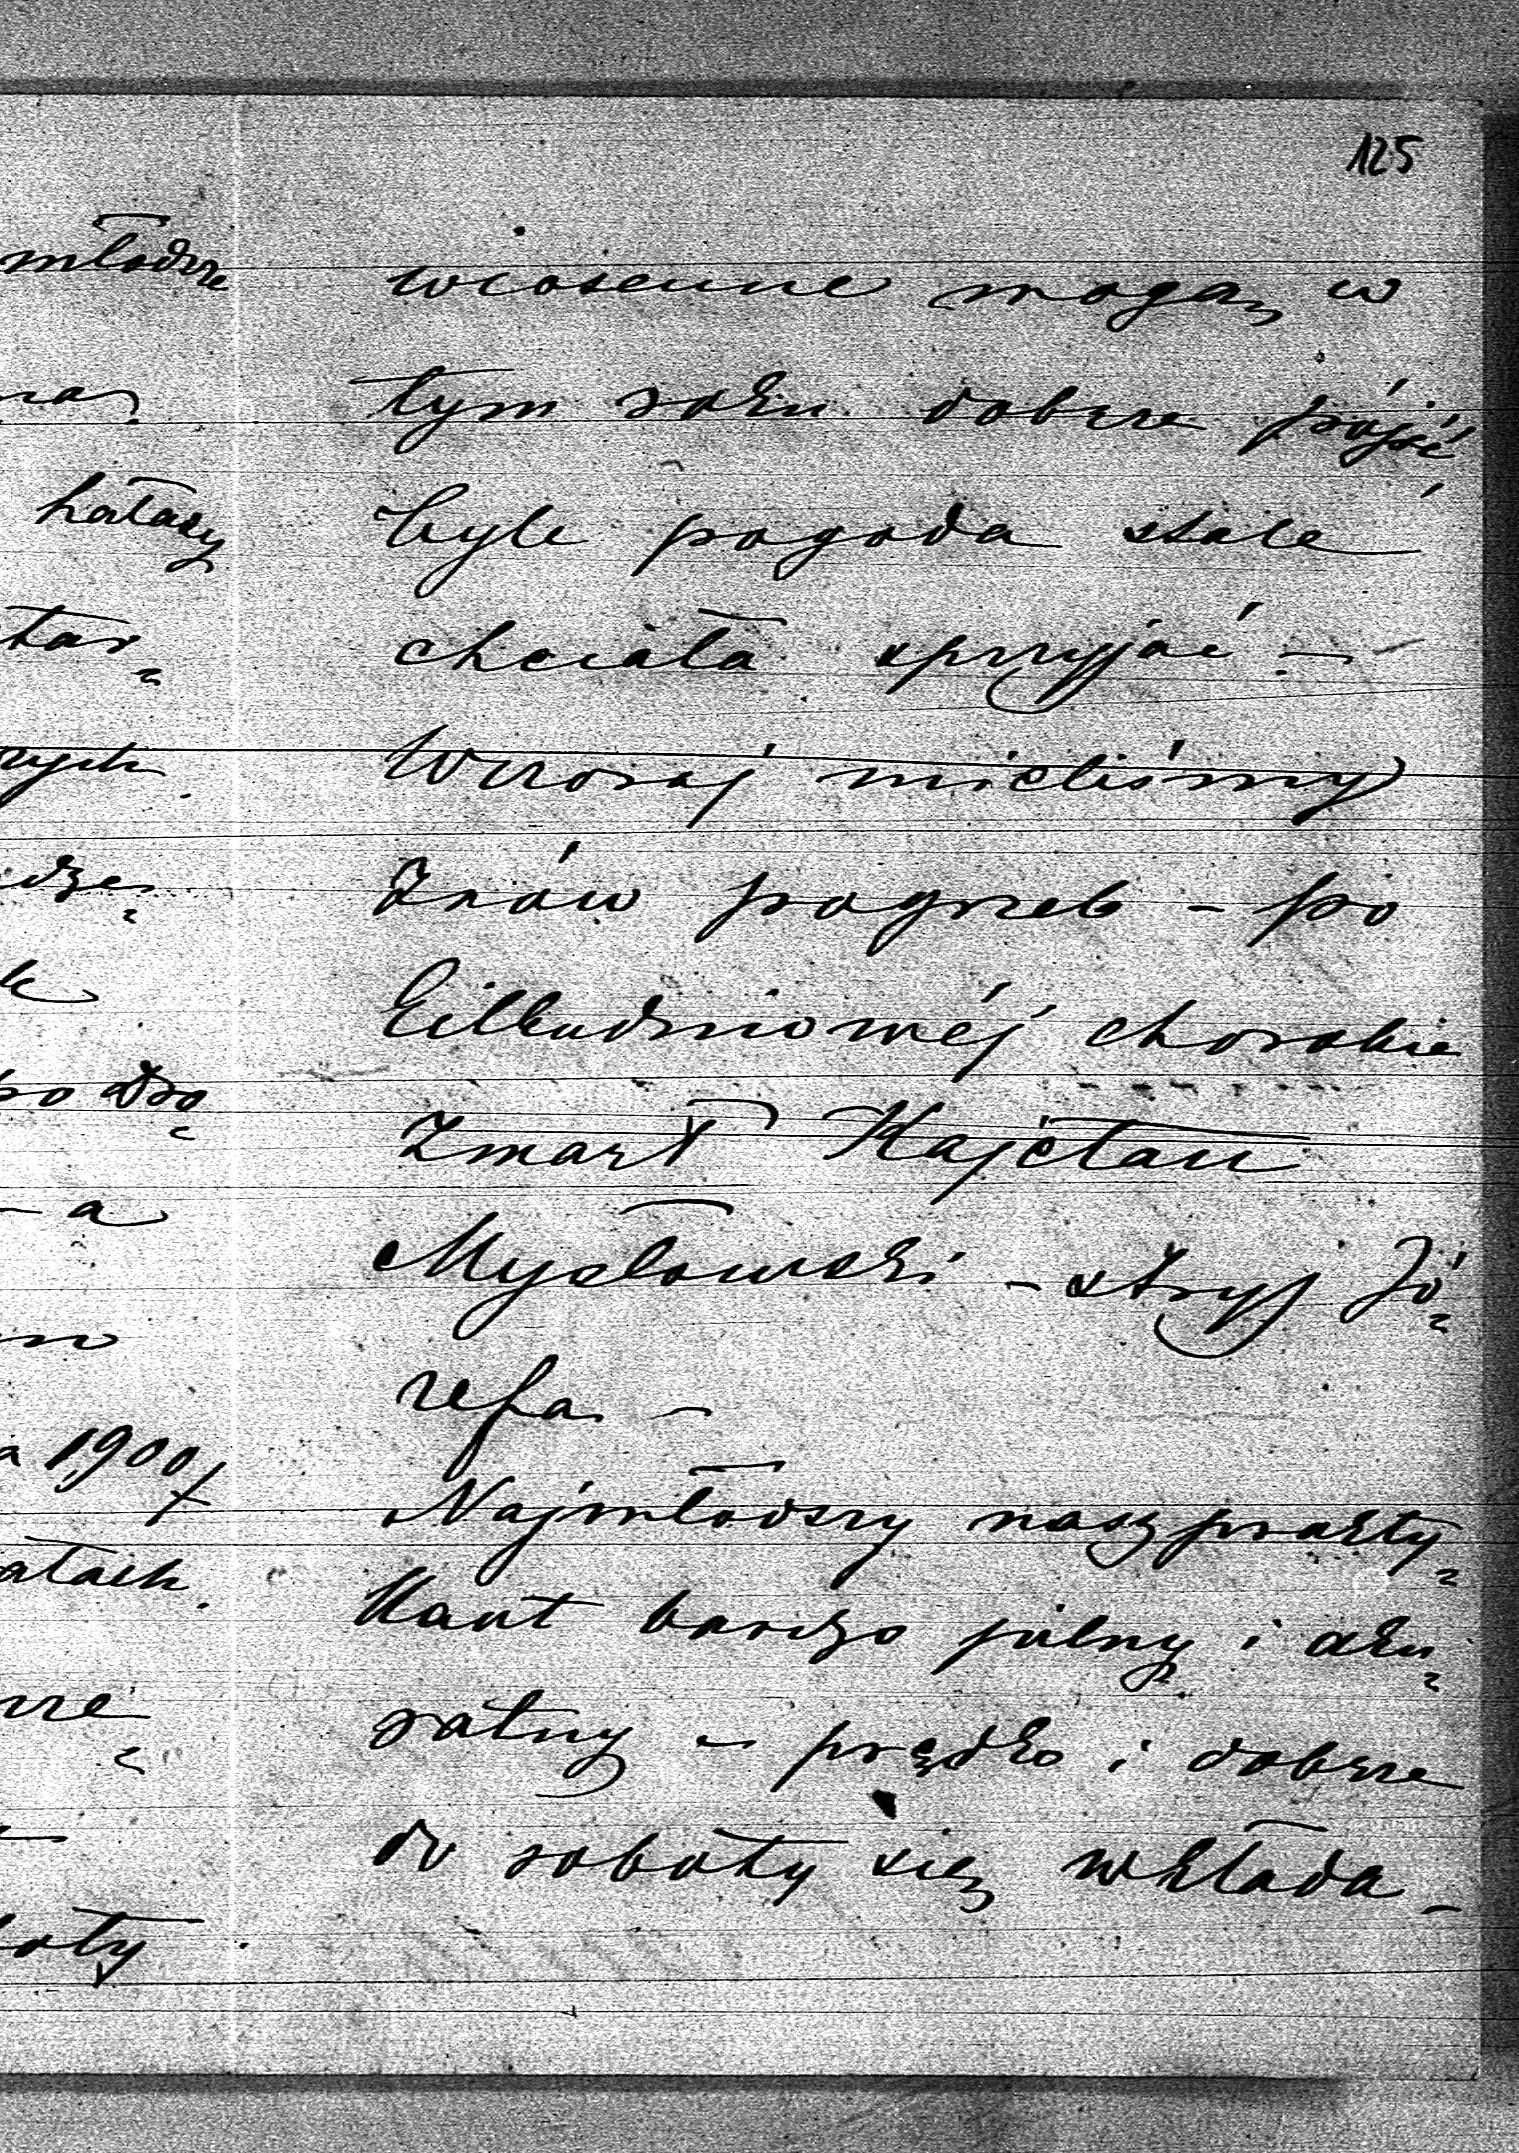 125
młodsze
hałasy
a 1900
wiosenne mogą w
tym roku dobrze pójść
byle pogoda stale
chciała sprzyjać. –
Wczoraj mieliśmy
Znów pogrzeb – po
kilkudniowéj chorobie
Zmarł Kajetan
Mysłowski – stryj Jó=
zefa –
Najmłodszy nasz prakty=
kant bardzo pilny i aku=
ratny – prędko i dobrze
do roboty się wkłada –